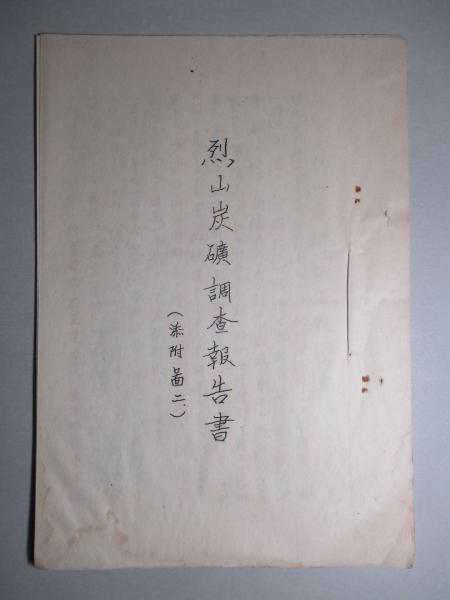 烈山炭礦調査報告書
(添附圖二.)